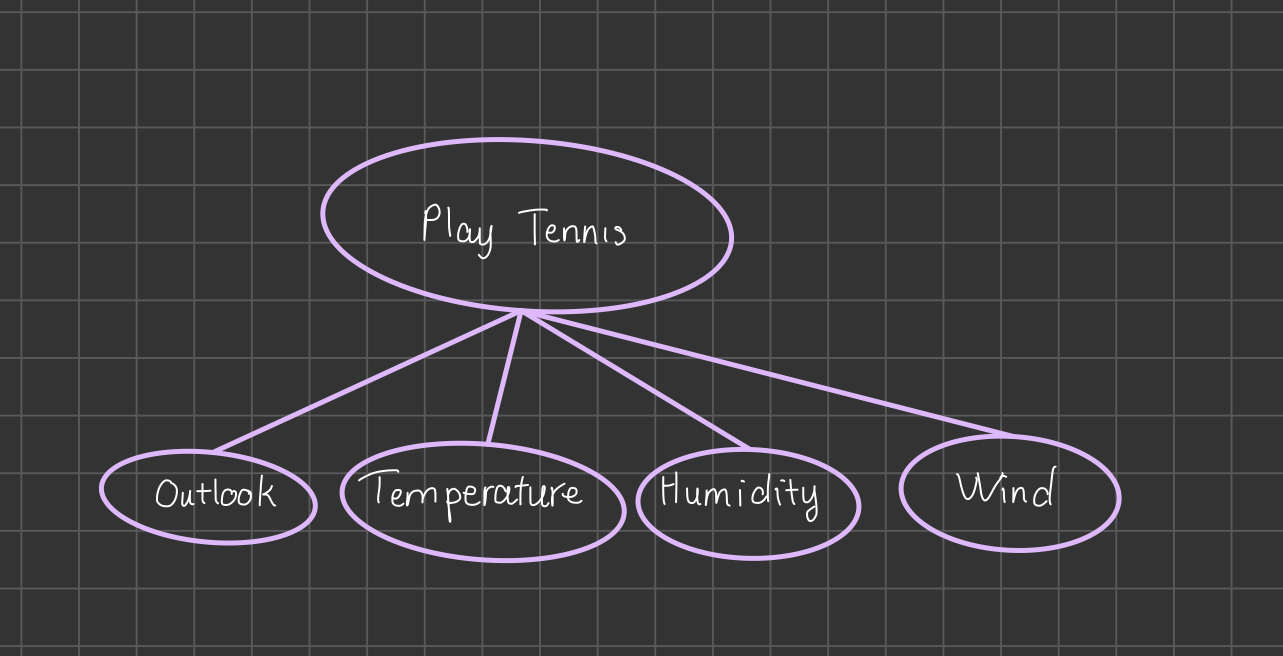 Play Tennis
Outlook
Temperature
Humidity
Wind